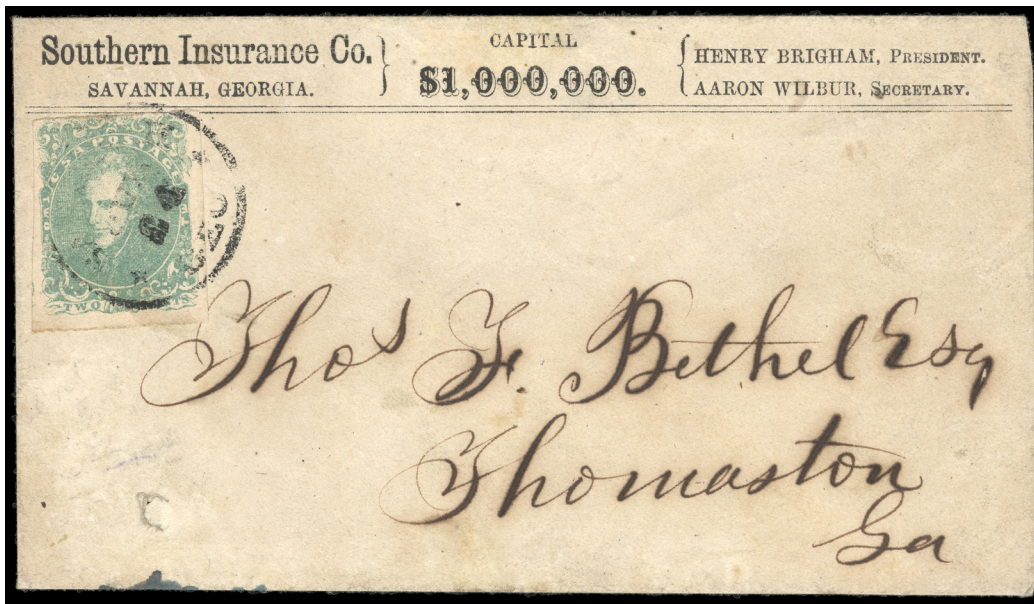 Southern Insurance Co.
SAVANNAH, GEORGIA.
CAPITAL
$1,000,000.
HENRY BRIGHAM, PRESIDENT.
AARON WILBUR, SECRETARY.
POSTAGE
TWO
Thos F. Bethel Esq
Thomaston
Ga